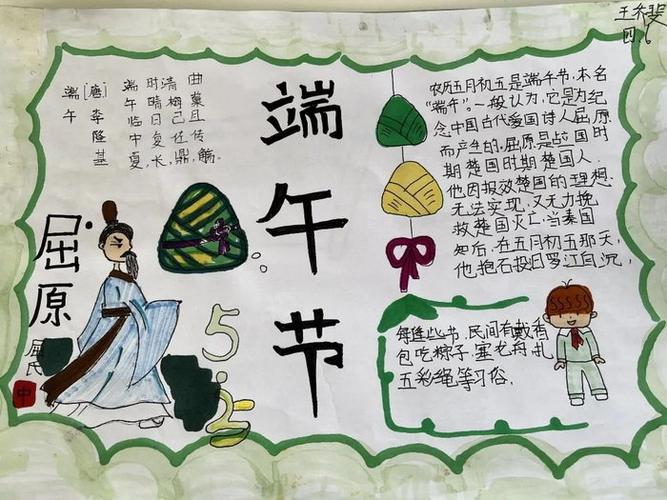 王乔斐
四.6
端午
[唐]李隆基
端午临中夏,
时晴日复长,
清栩己任鼎,
曲菓且传觞。
端午节
农历五月初五是端午节,本名
"端午",一般认为,它是为纪
念中国古代爱国诗人屈原
而产生的,屈原是战国时
期楚国时期楚国人.
他因报效楚国的理想
无法实现,又无力挽
救楚国火亡,当秦国
知后,在五月初五那天,
他抱石投日罗江自沉.
屈原
屈氏
中
5
每逢些节,民间有戴香
包吃粽子,塞龙舟,扎
五彩绳等习俗.